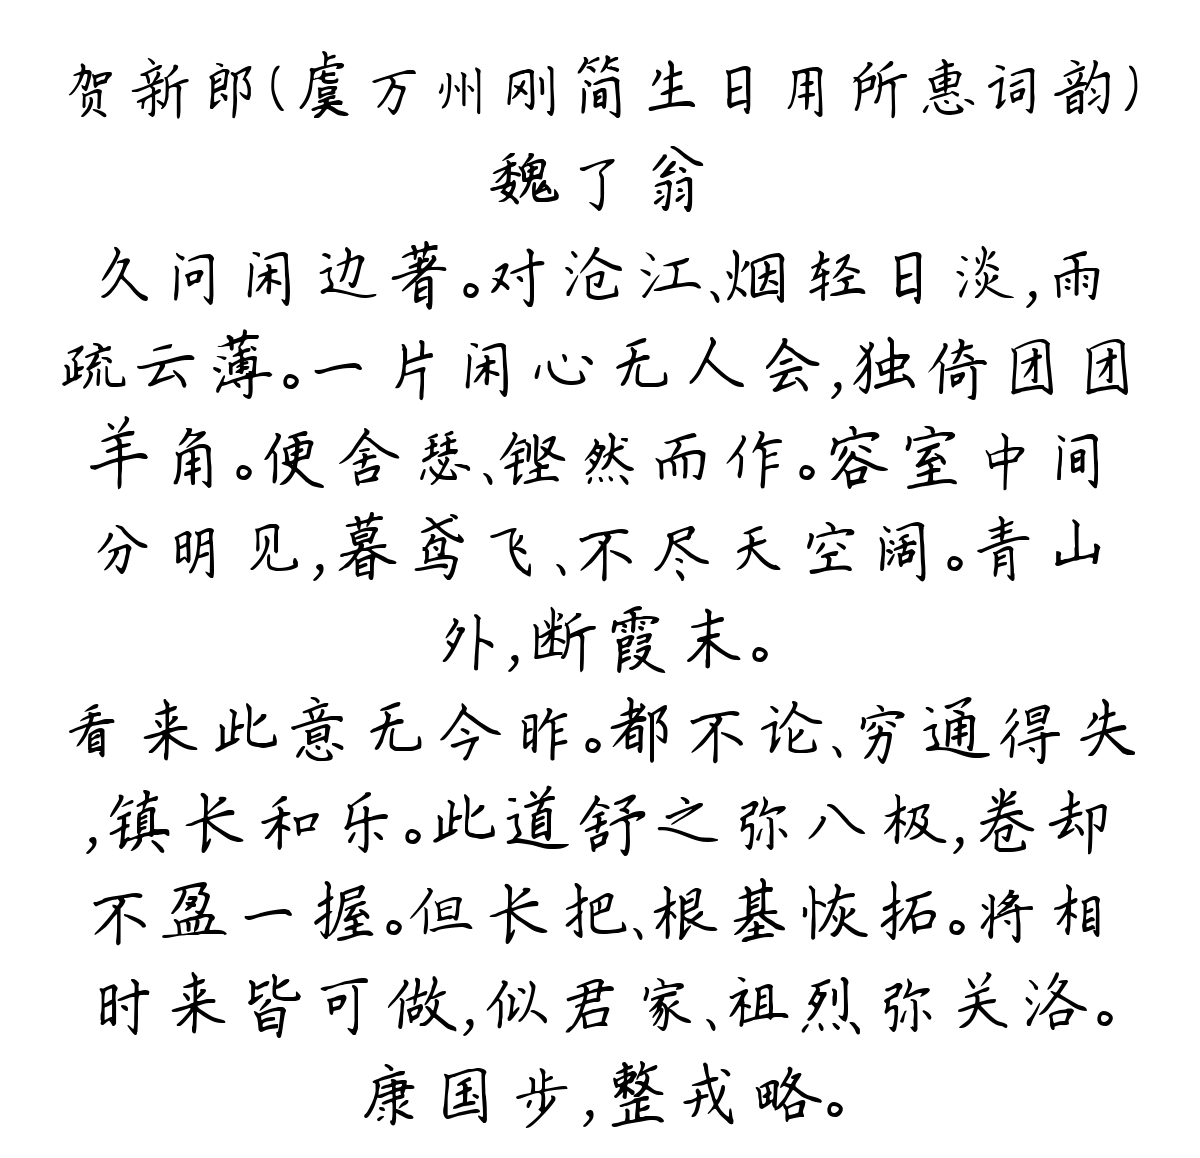 贺新郎(虞万州刚简生日用所惠词韵)
魏了翁
久问闲边著。对沧江、烟轻日淡,雨
疏云薄。一片闲心无人会,独倚团团
羊角。便舍瑟、铿然而作。容室中间
分明见,暮鸢飞、不尽天空阔。青山
外,断霞末。
看来此意无今昨。都不论、穷通得失
,镇长和乐。此道舒之弥八极,卷却
不盈一握。但长把、根基恢拓。将相
时来皆可做,似君家、祖烈弥关洛。
康国步,整戎略。